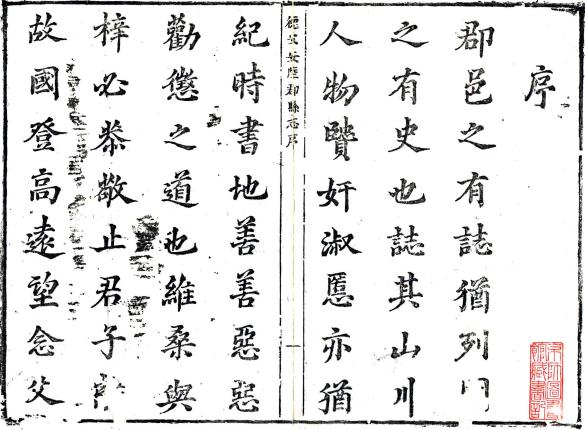 序
郡邑之有誌猶列
之有史也誌其山川
人物賢奸淑慝亦猶
德安安陸郡縣志序
一
紀時書地善善惡惡
勸懲之道也維桑與
梓必恭敬止君子
故國登高遠望念父